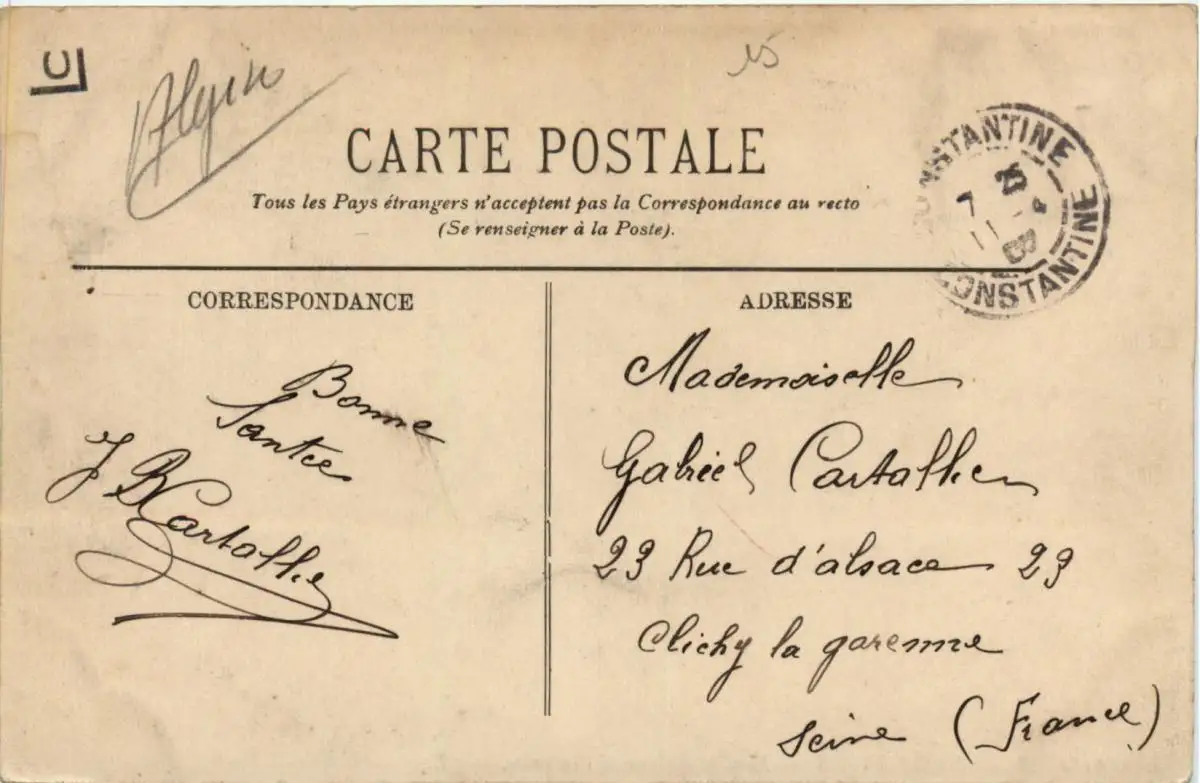 LC
15
CARTE POSTALE
Tous les Pays étrangers n'acceptent pas la Correspondance au recto
(Se renseigner à la Poste).
CONSTANTINE
7 25
11 - 8
08
CONSTANTINE
CORRESPONDANCE
ADRESSE
Bonne
Santée
J B Cartallie
Mademoiselle
Gabriel Cartallier
23 Rue d'alsace 23
Clichy la garenne
Seine (France)